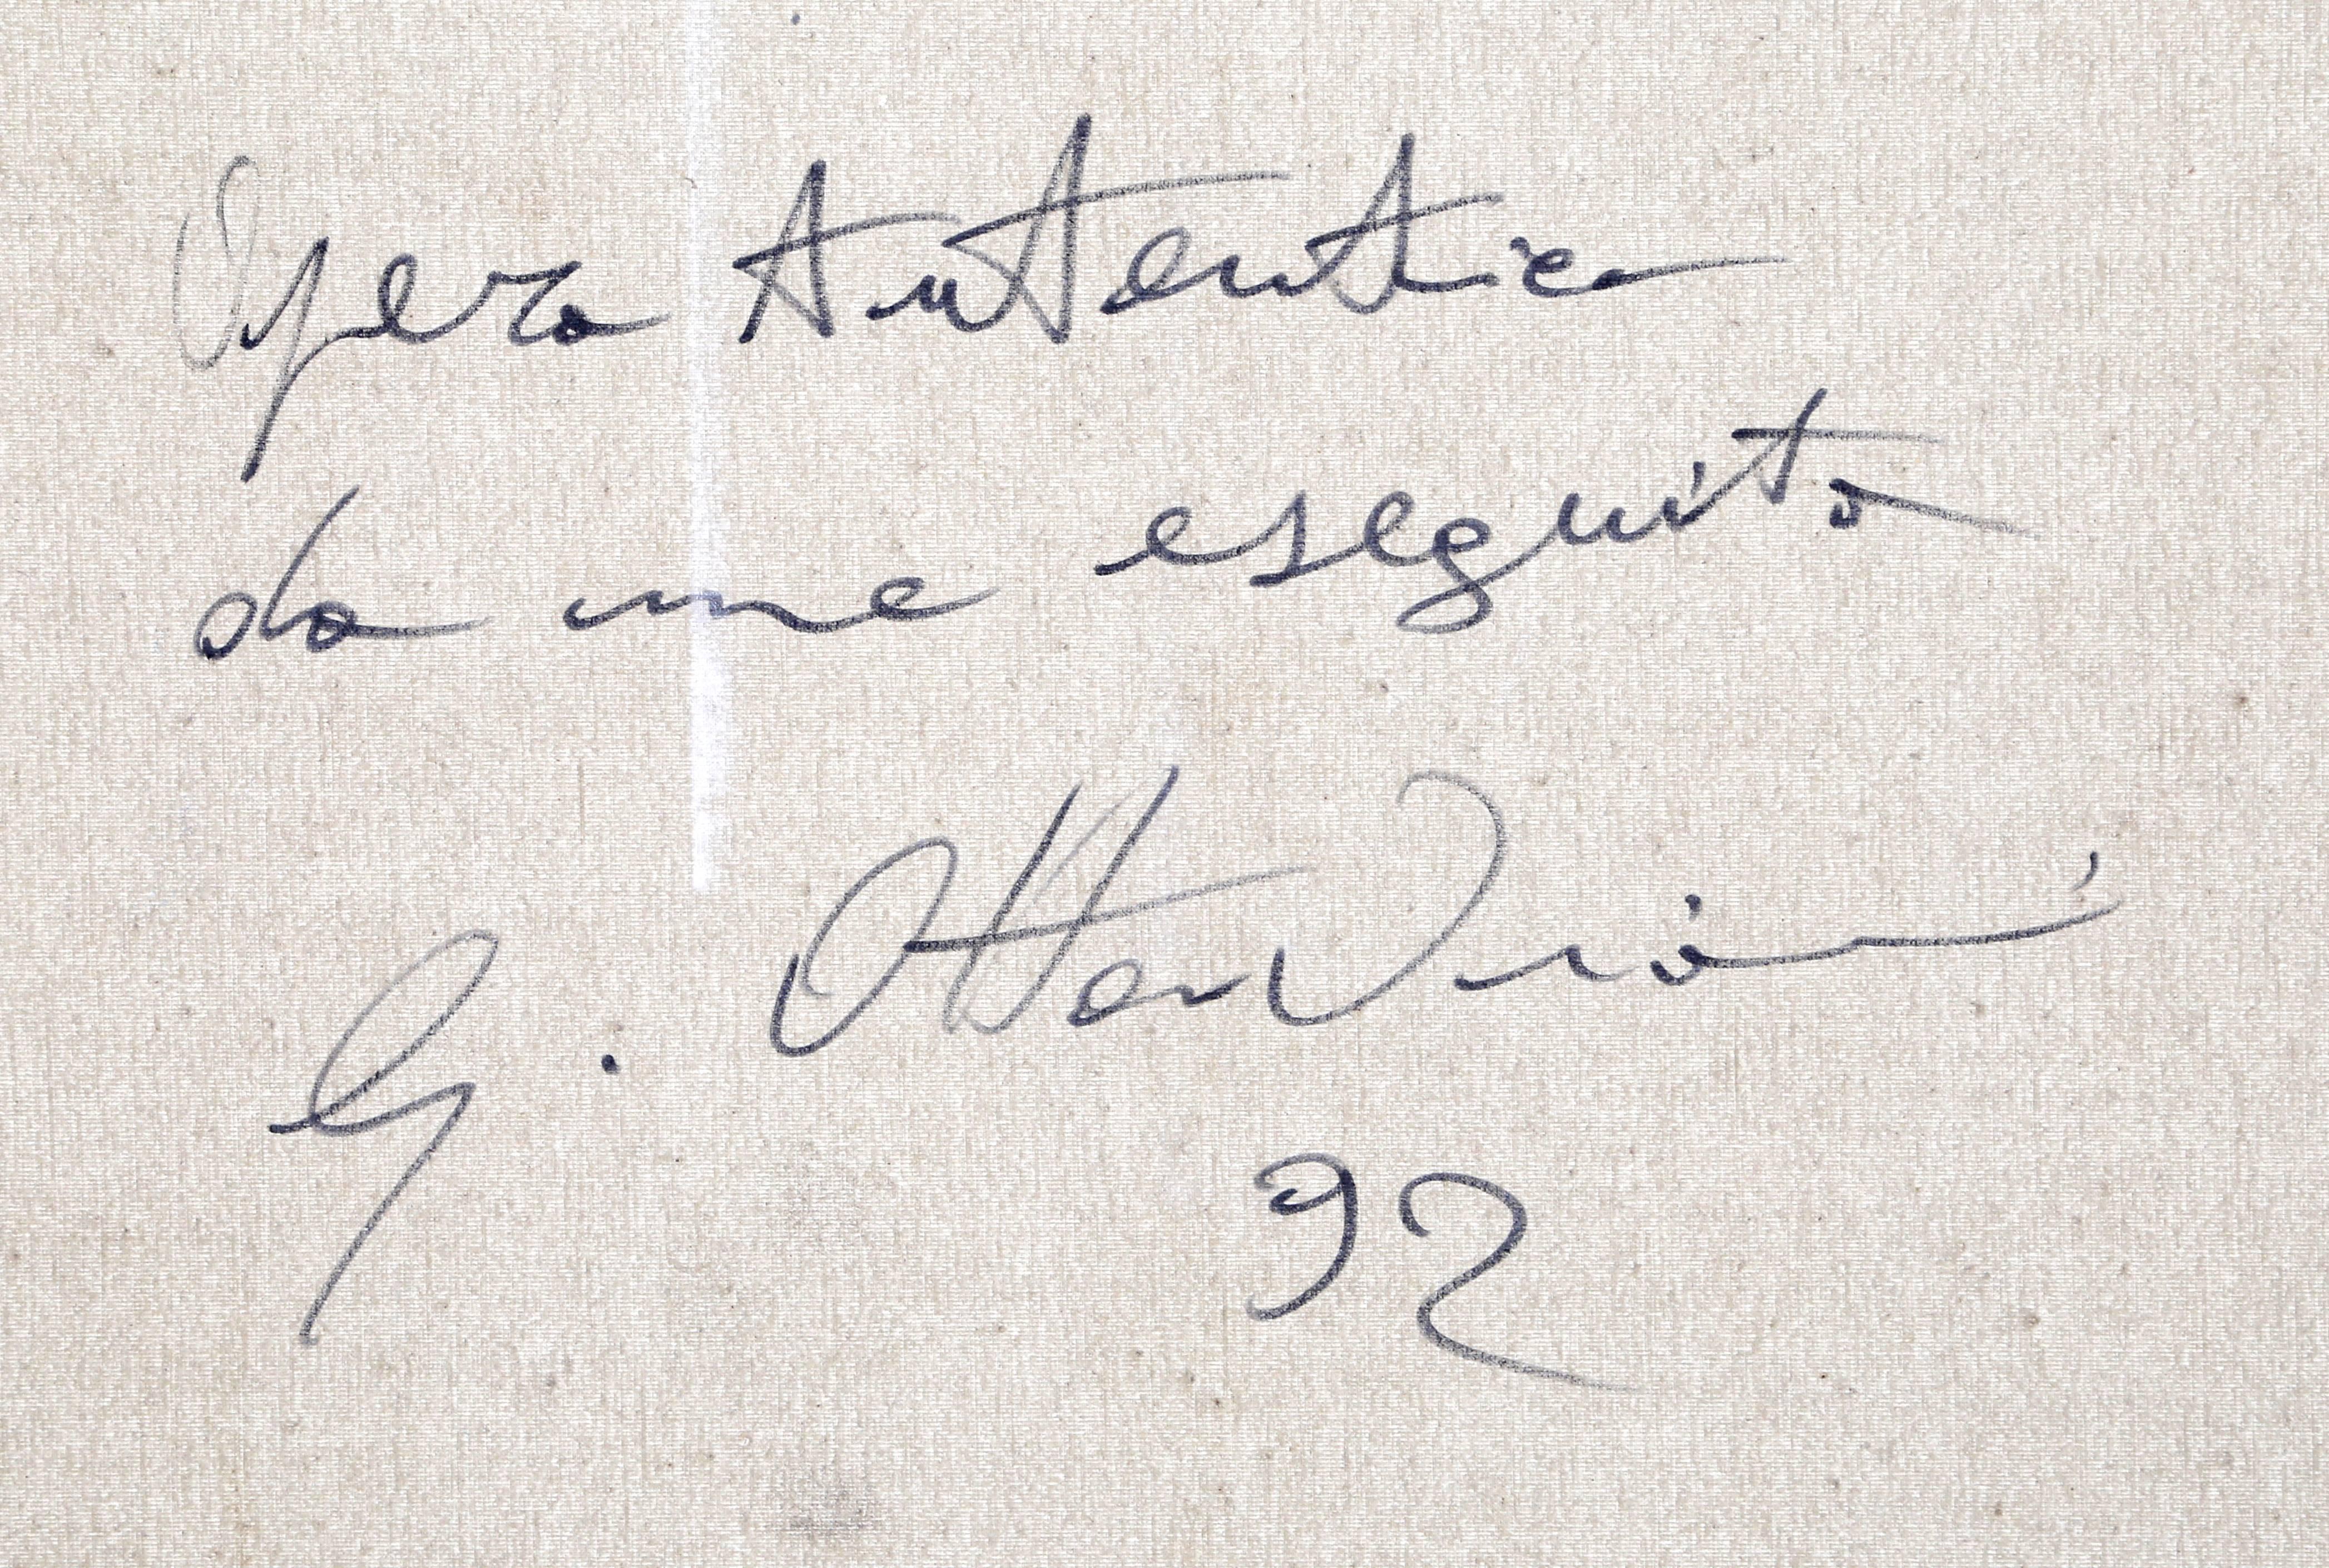 Opera Autentica
da me eseguita
G. Ottaviani
92